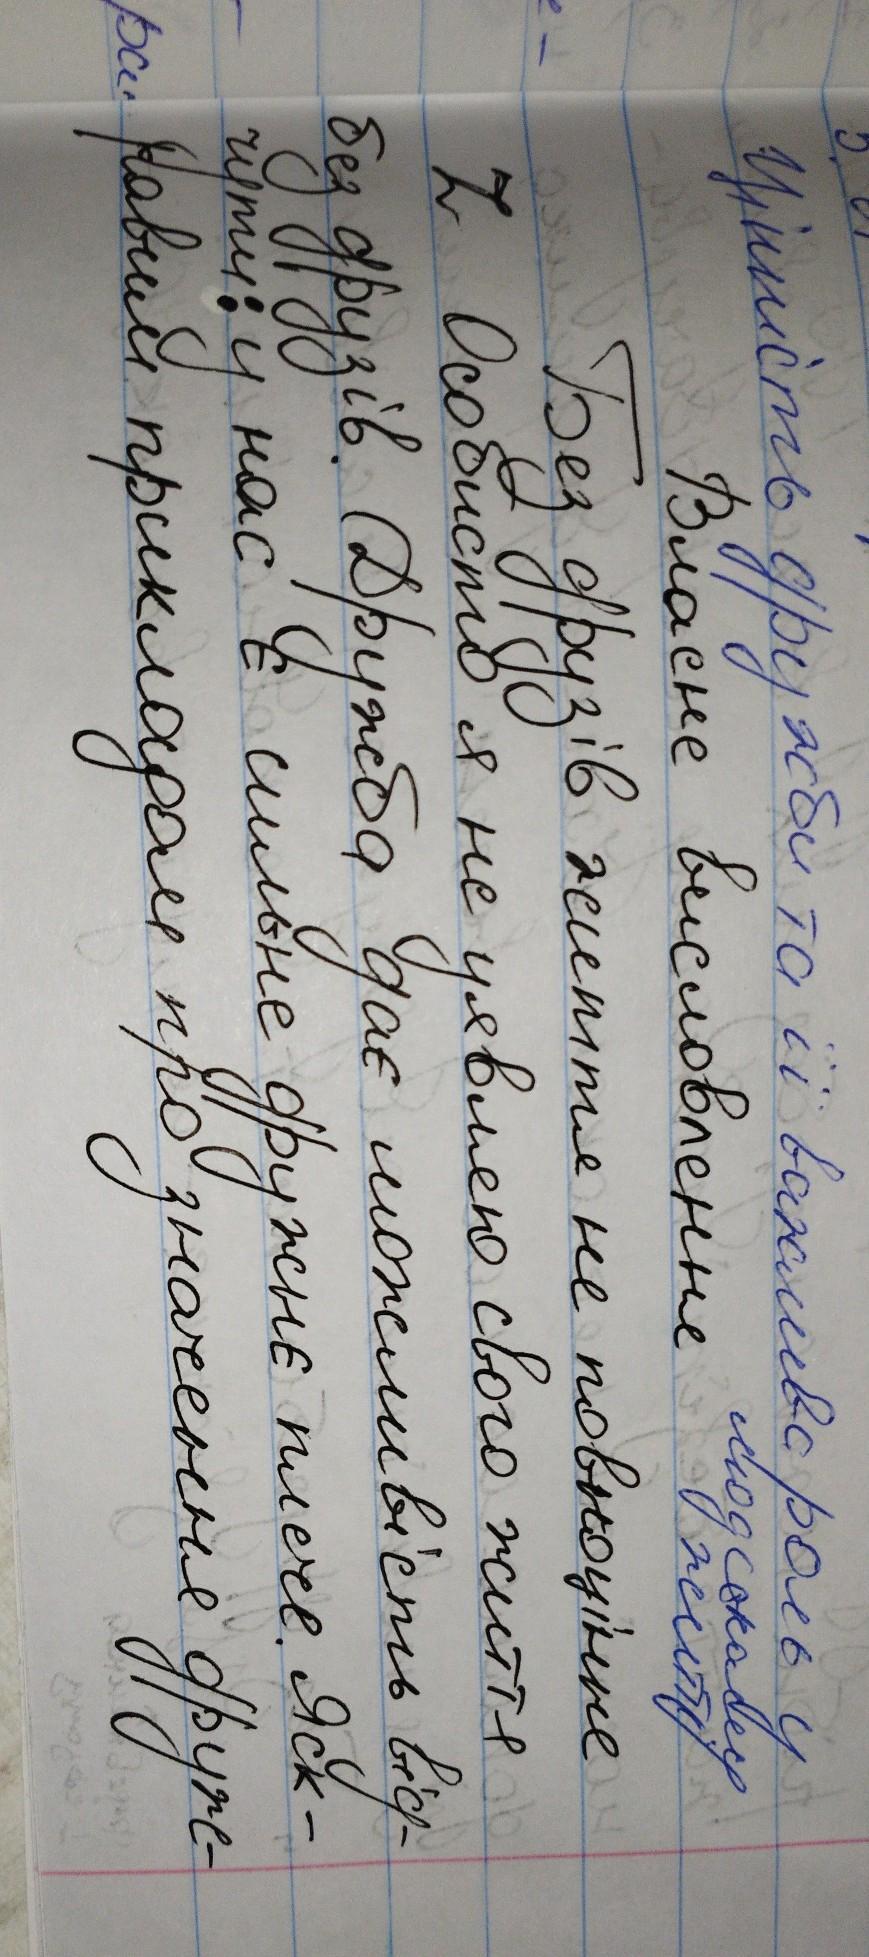 Цінність дружби та її важлива роль у
людському житті
Власне висловлення
Без друзів життя не повноцінне
Z Особисто я не уявляю свого життя
без друзів. Дружба дає можливість від-
чути: у нас є сильне дружнє плече. Яск-
равим прикладом про значення друж-